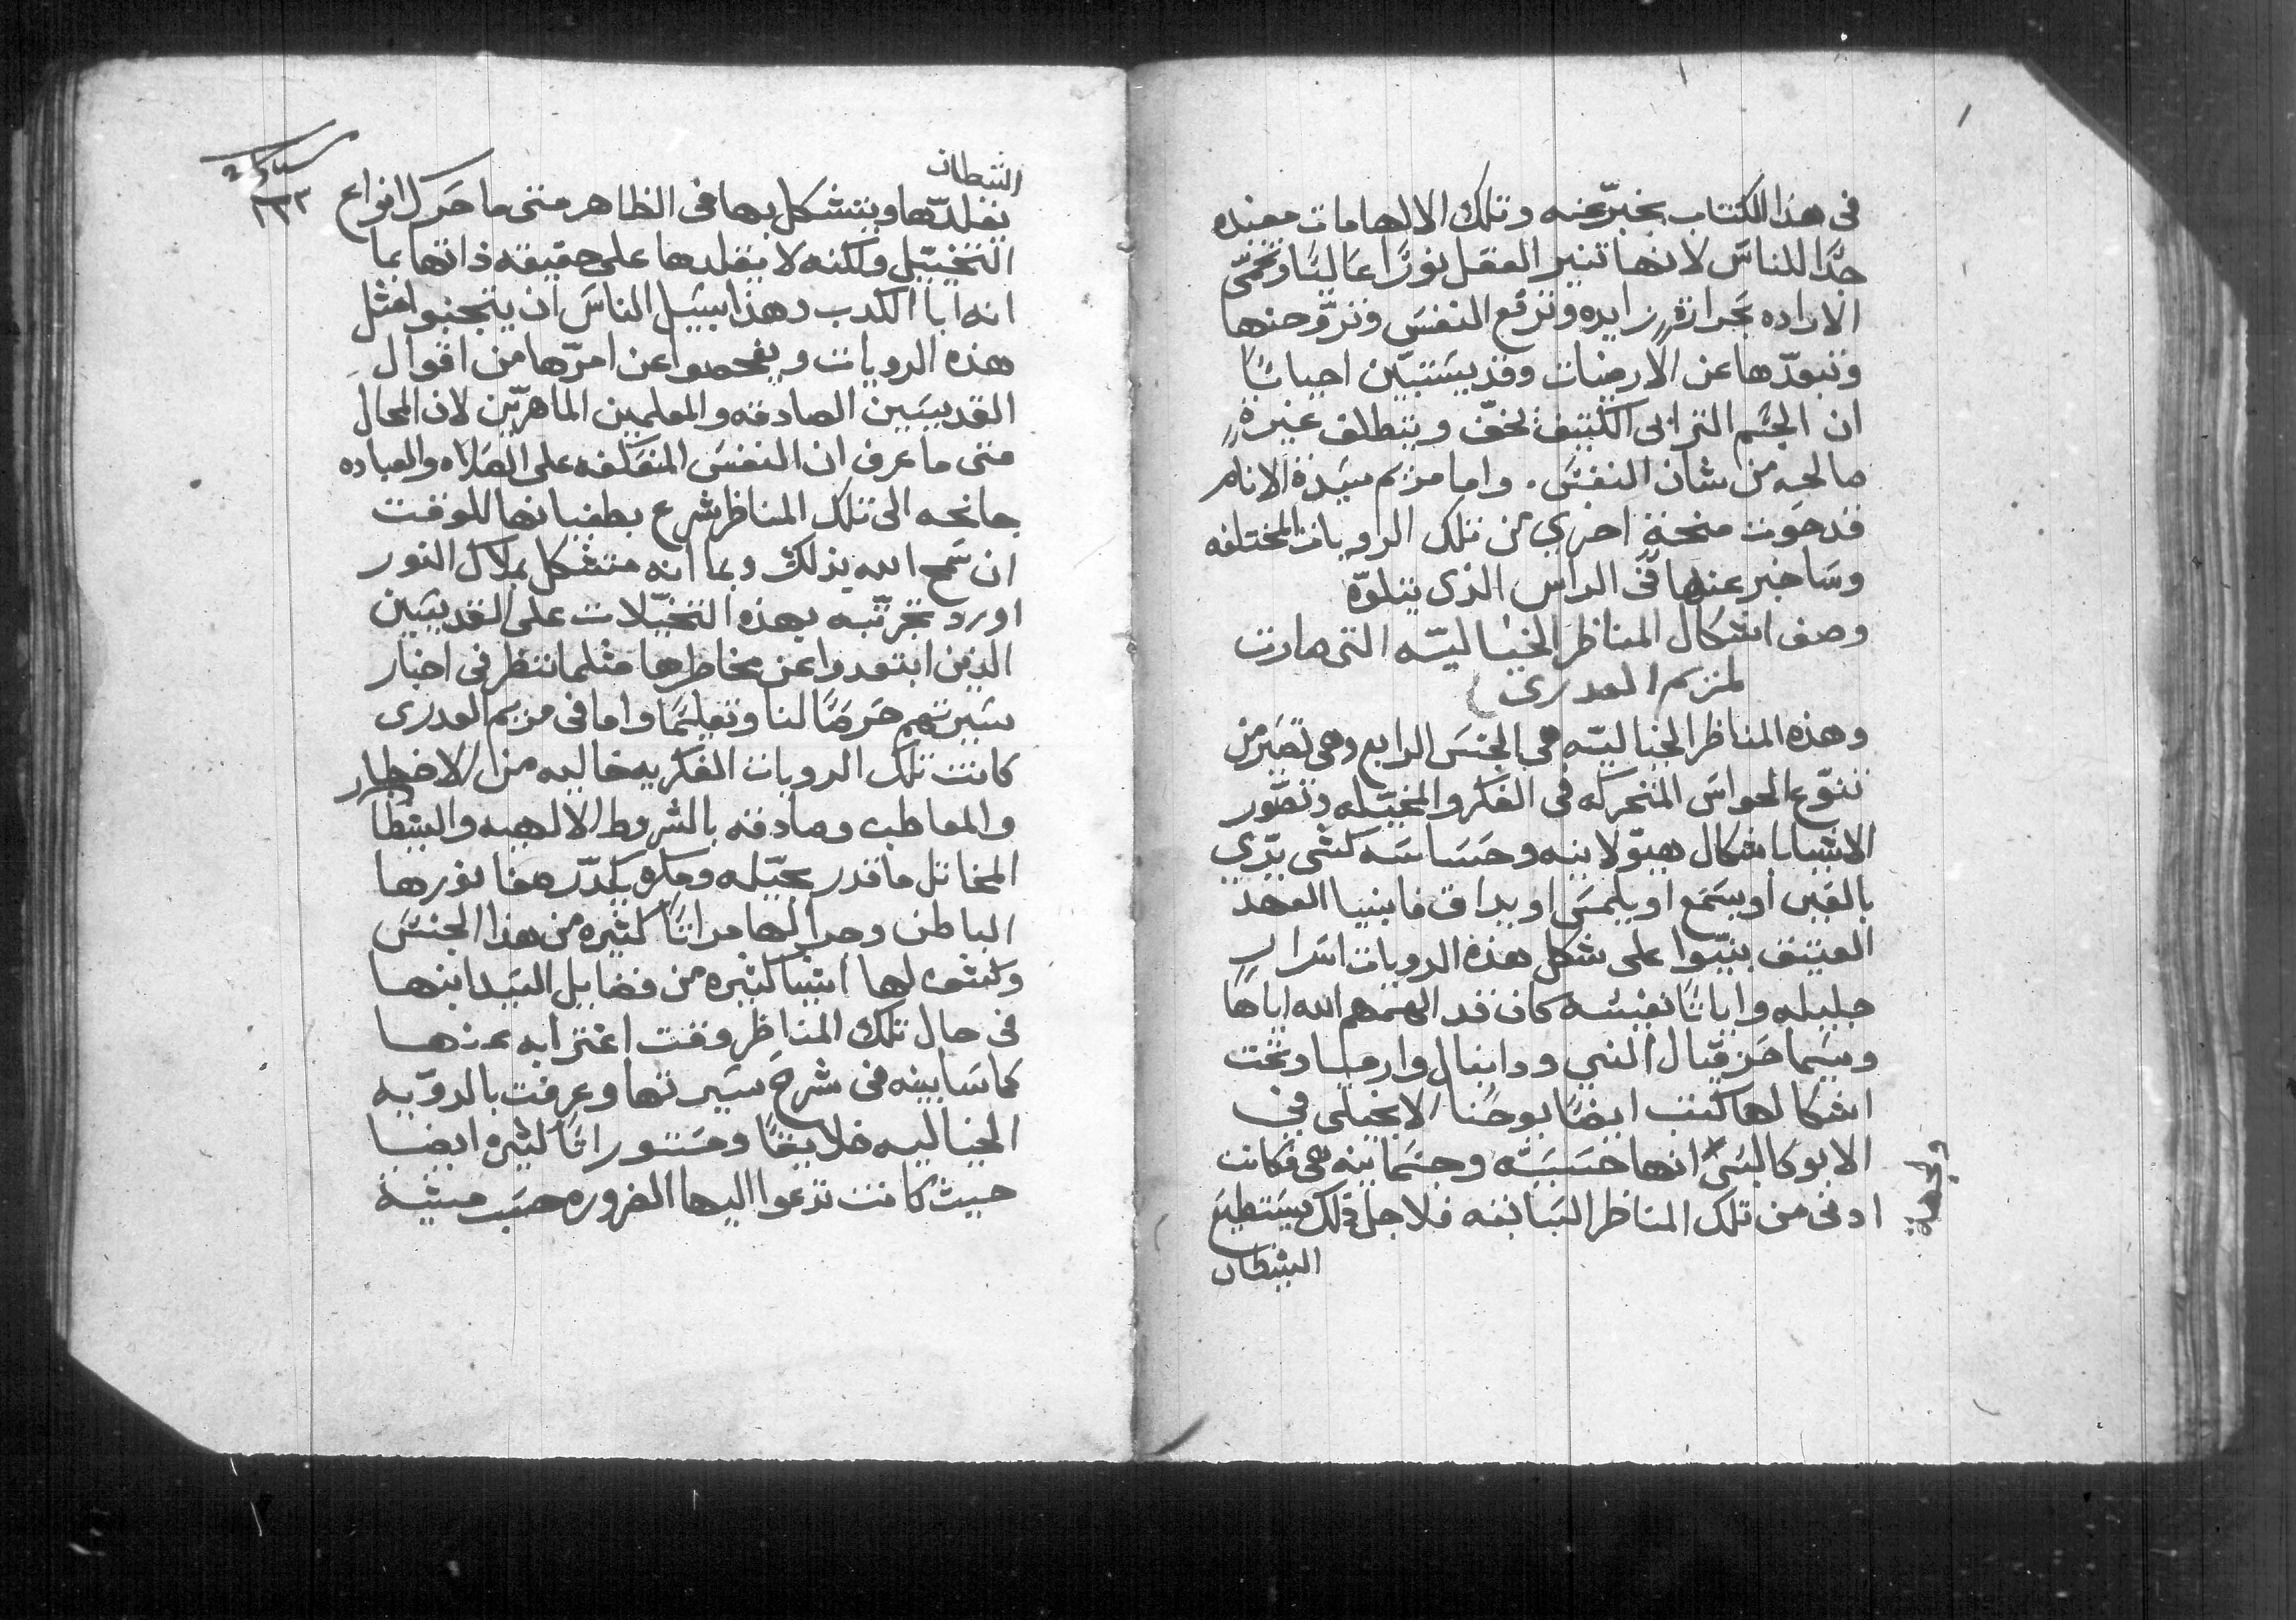 في هذا الكتاب يخبر عنه وتلك الالهامات مفيده
جدًا للناس لانها تنير العقل نورًا عاليًا وتحمّي
الاراده بحرارةٍ زايده وترفع النفس وتروّحنها
وتبعّدها عن الارضيات وقد يستبيّن احيانًا
ان الجسم الترابى الكثيف تخفّ وينطلق غيرةٍ
صالحه من شان النفس. واما مريم سيدة الانام
قد حوت منحة اخري من تلك الرويات المختلفه
وساخبر عنها في الراس الذى يتلوّه
وصف اشكال المناظر الخياليّه التى صارت
لمريم العدرى
وهذه المناظر الخياليّه هي الجنس الرابع وهي تصير من
تنوّع الحواس المتحركه في الفكر والمخيّله وتصّور
الاشيا باشكال هيّولانيه وحساسه كشى يرّي
بالعين او يسمع او يلمس او يداق فانبيا العهد
العتيق بنيّوا على شكل هذه الرويات اسرارٍ
جليله واياتًا نفيسة كان قد الهمهم الله اياها
وسيما حزقيال النبي ودانيال وارميا وتحت
اشكالها كتب ايضًا يوحنا الانجيلي في
الابوكالبسي انها حسيّه وجسمانيه هي فكانت
ادنى من تلك المناظر السابقه فلاجل ذلك يستطيع
الشيطان
الشيطان
يقلدّها ويتشكل بها في الظاهر متى ما حرك انواع
التخيّل ولكنه لا يقلدها على حقيقة ذاتها بما
انه ابا الكدب وهذا سبيل الناس ان يتجنبوا مثل
هذه الرويات ويفحصوا عن امرّها من اقوال
القديسين الصادقه والمعلمين الماهرين لان المحال
متى ما عرف ان النفس المنعكفه على الصلاه والعباده
جانحه الى تلك المناظر شرع بطغيانها للوقت
ان سمح الله بذلك وبما انه متشكل بملاك النور
اورد تجرّبه بهذه التخيّلات على القديسين
الذين ابتعدوا عن مخاطرها مثلما تنظر في اخبار
سيرتهم حرصًا لنا وتعليمًا واما في مريم العدرى
كانت تلك الرويات الفكريه خاليه من الاخطار
والمعاطب وصادقه بالشروط الالهيه والشيطان
المخاتل ما قدر بحيّله ومكره يكدّر صفا نورها
الباطن وجرا لها مرارًا كثيره من هذا الجنس
وكشف لها اشيا كثيره من فضايل السيد ابنها
في حال تلك المناظر وقت اغترابه عنها
كما سابينه في شرح سيرتها وعرفت بالرويّه
الخياليه خلايقًا ومستورات كثيره ايضا
حيث كانت تدعوا اليها الضروره حسب مشية